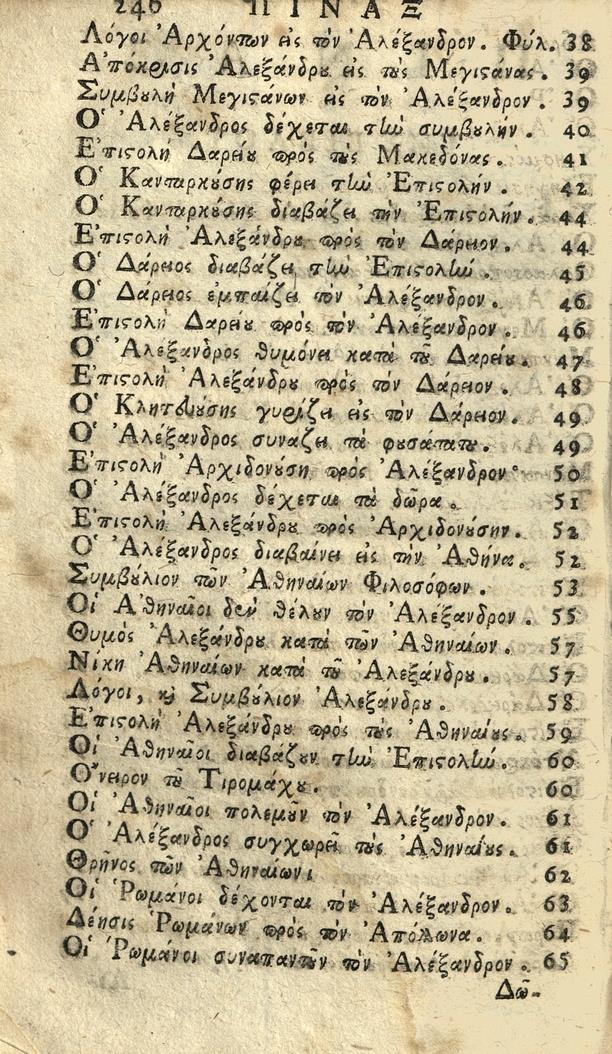 240 ΠΙΝΑΞ
Λόγοι Ἀρχόντων εἰς τὸν Ἀλέξανδρον. Φύλ. 38
Ἀπόκρισις Ἀλεξάνδρου εἰς τοὺς Μεγιστάνας. 39
Συμβουλὴ Μεγιστάνων εἰς τὸν Ἀλέξανδρον. 39
Ὁ Ἀλέξανδρος δέχεται τὴν συμβουλήν. 40
Ἐπιστολὴ Δαρείου πρὸς τοὺς Μακεδόνας. 41
Ὁ Κανταρκούσης φέρει τὴν Ἐπιστολήν. 42
Ὁ Κανταρκούσης διαβάζει τὴν Ἐπιστολήν. 44
Ἐπιστολὴ Ἀλεξάνδρου πρὸς τὸν Δάρειον. 44
Ὁ Δάρειος διαβάζει τὴν Ἐπιστολὴν. 45
Ὁ Δάρειος ἐμπαίζει τὸν Ἀλέξανδρον. 46
Ἐπιστολὴ Δαρείου πρὸς τὸν Ἀλέξανδρον. 46
Ὁ Ἀλέξανδρος θυμόνει κατὰ τοῦ Δαρείου. 47
Ἐπιστολὴ Ἀλεξάνδρου πρὸς τὸν Δάρειον. 48
Ὁ Κλητευούσης γυρίζει εἰς τὸν Δάρειον. 49
Ὁ Ἀλέξανδρος συνάζει τὰ φουσάτατου. 49
Ἐπιστολὴ Ἀρχιδονούση πρὸς Ἀλέξανδρον. 50
Ὁ Ἀλέξανδρος δέχεται τὰ δῶρα. 51
Ἐπιστολὴ Ἀλεξάνδρου πρὸς Ἀρχιδονούσην. 52
Ὁ Ἀλέξανδρος διαβαίνει εἰς τὴν Ἀθήνα. 52
Συμβούλιον τῶν Ἀθηναίων Φιλοσόφων. 53
Οἱ Ἀθηναῖοι δεν θέλουν τὸν Ἀλέξανδρον. 55
Θυμὸς Ἀλεξάνδρου κατὰ τῶν Ἀθηναίων. 57
Νίκη Ἀθηναίων κατὰ τοῦ Ἀλεξάνδρου. 57
Λόγοι, καὶ Συμβούλιον Ἀλεξάνδρου. 58
Ἐπιστολὴ Ἀλεξάνδρου πρὸς τοὺς Ἀθηναίους. 59
Οἱ Ἀθηναῖοι διαβάζουν τὴν Ἐπιστολὴν. 60
Ὄνειρον τοῦ Τιρομάχου. 60
Οἱ Ἀθηναῖοι πολεμοῦν τὸν Ἀλέξανδρον. 61
Ὁ Ἀλέξανδρος συγχωρεῖ τοὺς Ἀθηναίους. 61
Θρῆνος τῶν Ἀθηναίων. 62
Οἱ Ῥωμάνοι δέχονται τὸν Ἀλέξανδρον. 63
Δέησις Ῥωμάνων πρὸς τὸν Ἀπόλλωνα. 64
Οἱ Ῥωμάνοι συναπαντοῦν τὸν Ἀλέξανδρον. 65
Δῶ-